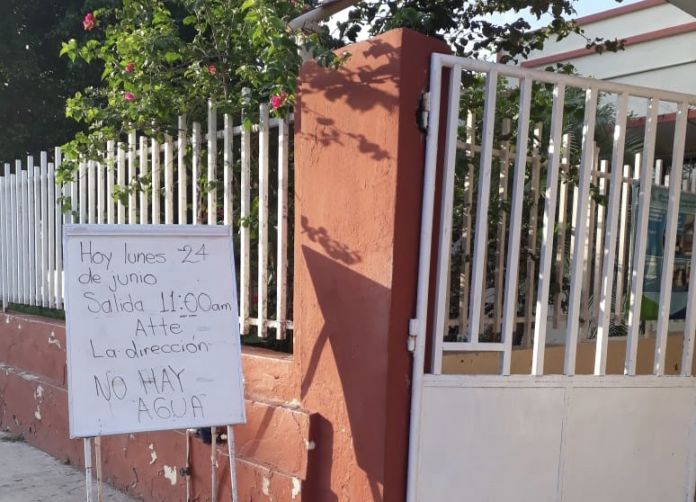 Hoy lunes 24
de junio
Salida 11:00am
Atte
La dirección
NO HAY
AGUA